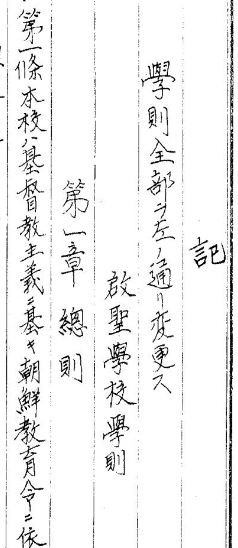 記
學則全部ヲ左ノ通リ変更ス
啟聖學校學則
第一章 總則
第一條 本校ハ基督教主義ニ基キ朝鮮教育令ニ依